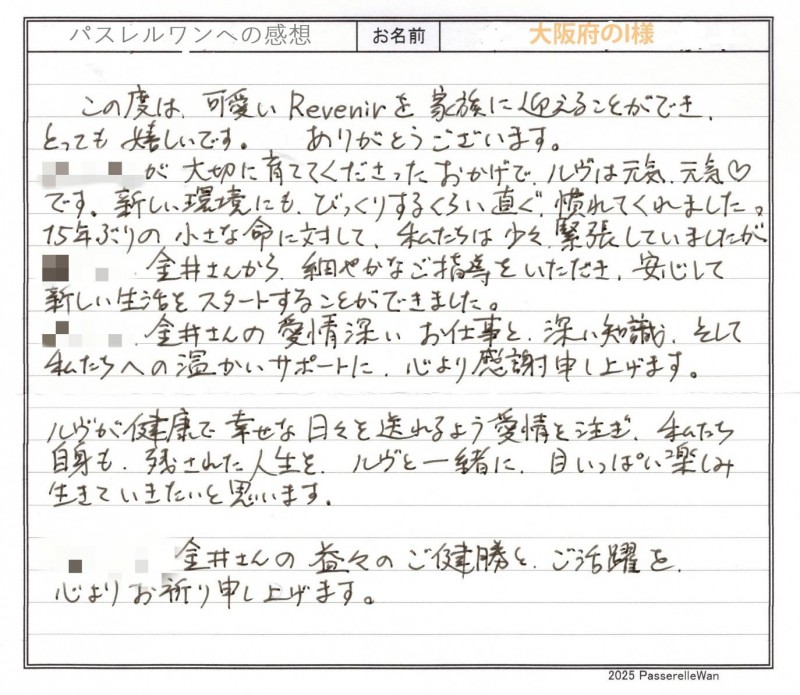 パスレルワンへの感想 お名前 大阪府のI様
この度は、可愛いRevenirを家族に迎えることができ、
とっても嬉しいです。 ありがとうございます。
が大切に育ててくださったおかげで、ルヴは元気、元気♡
です。新しい環境にも、びっくりするくらい直ぐ、慣れてくれました。
15年ぶりの小さな命に対して、私たちは少々、緊張していましたが
、金井さんから、細やかなご指導をいただき、安心して
新しい生活をスタートすることができました。
、金井さんの愛情深いお仕事と、深い知識、そして
私たちへの温かいサポートに、心より感謝申し上げます。
ルヴが健康で幸せな日々を送れるよう愛情を注ぎ、私たち
自身も、残された人生を、ルヴと一緒に、目いっぱい楽しみ
生きていきたいと思います。
金井さんの益々のご健勝と、ご活躍を、
心よりお祈り申し上げます。
2025 PasserelleWan